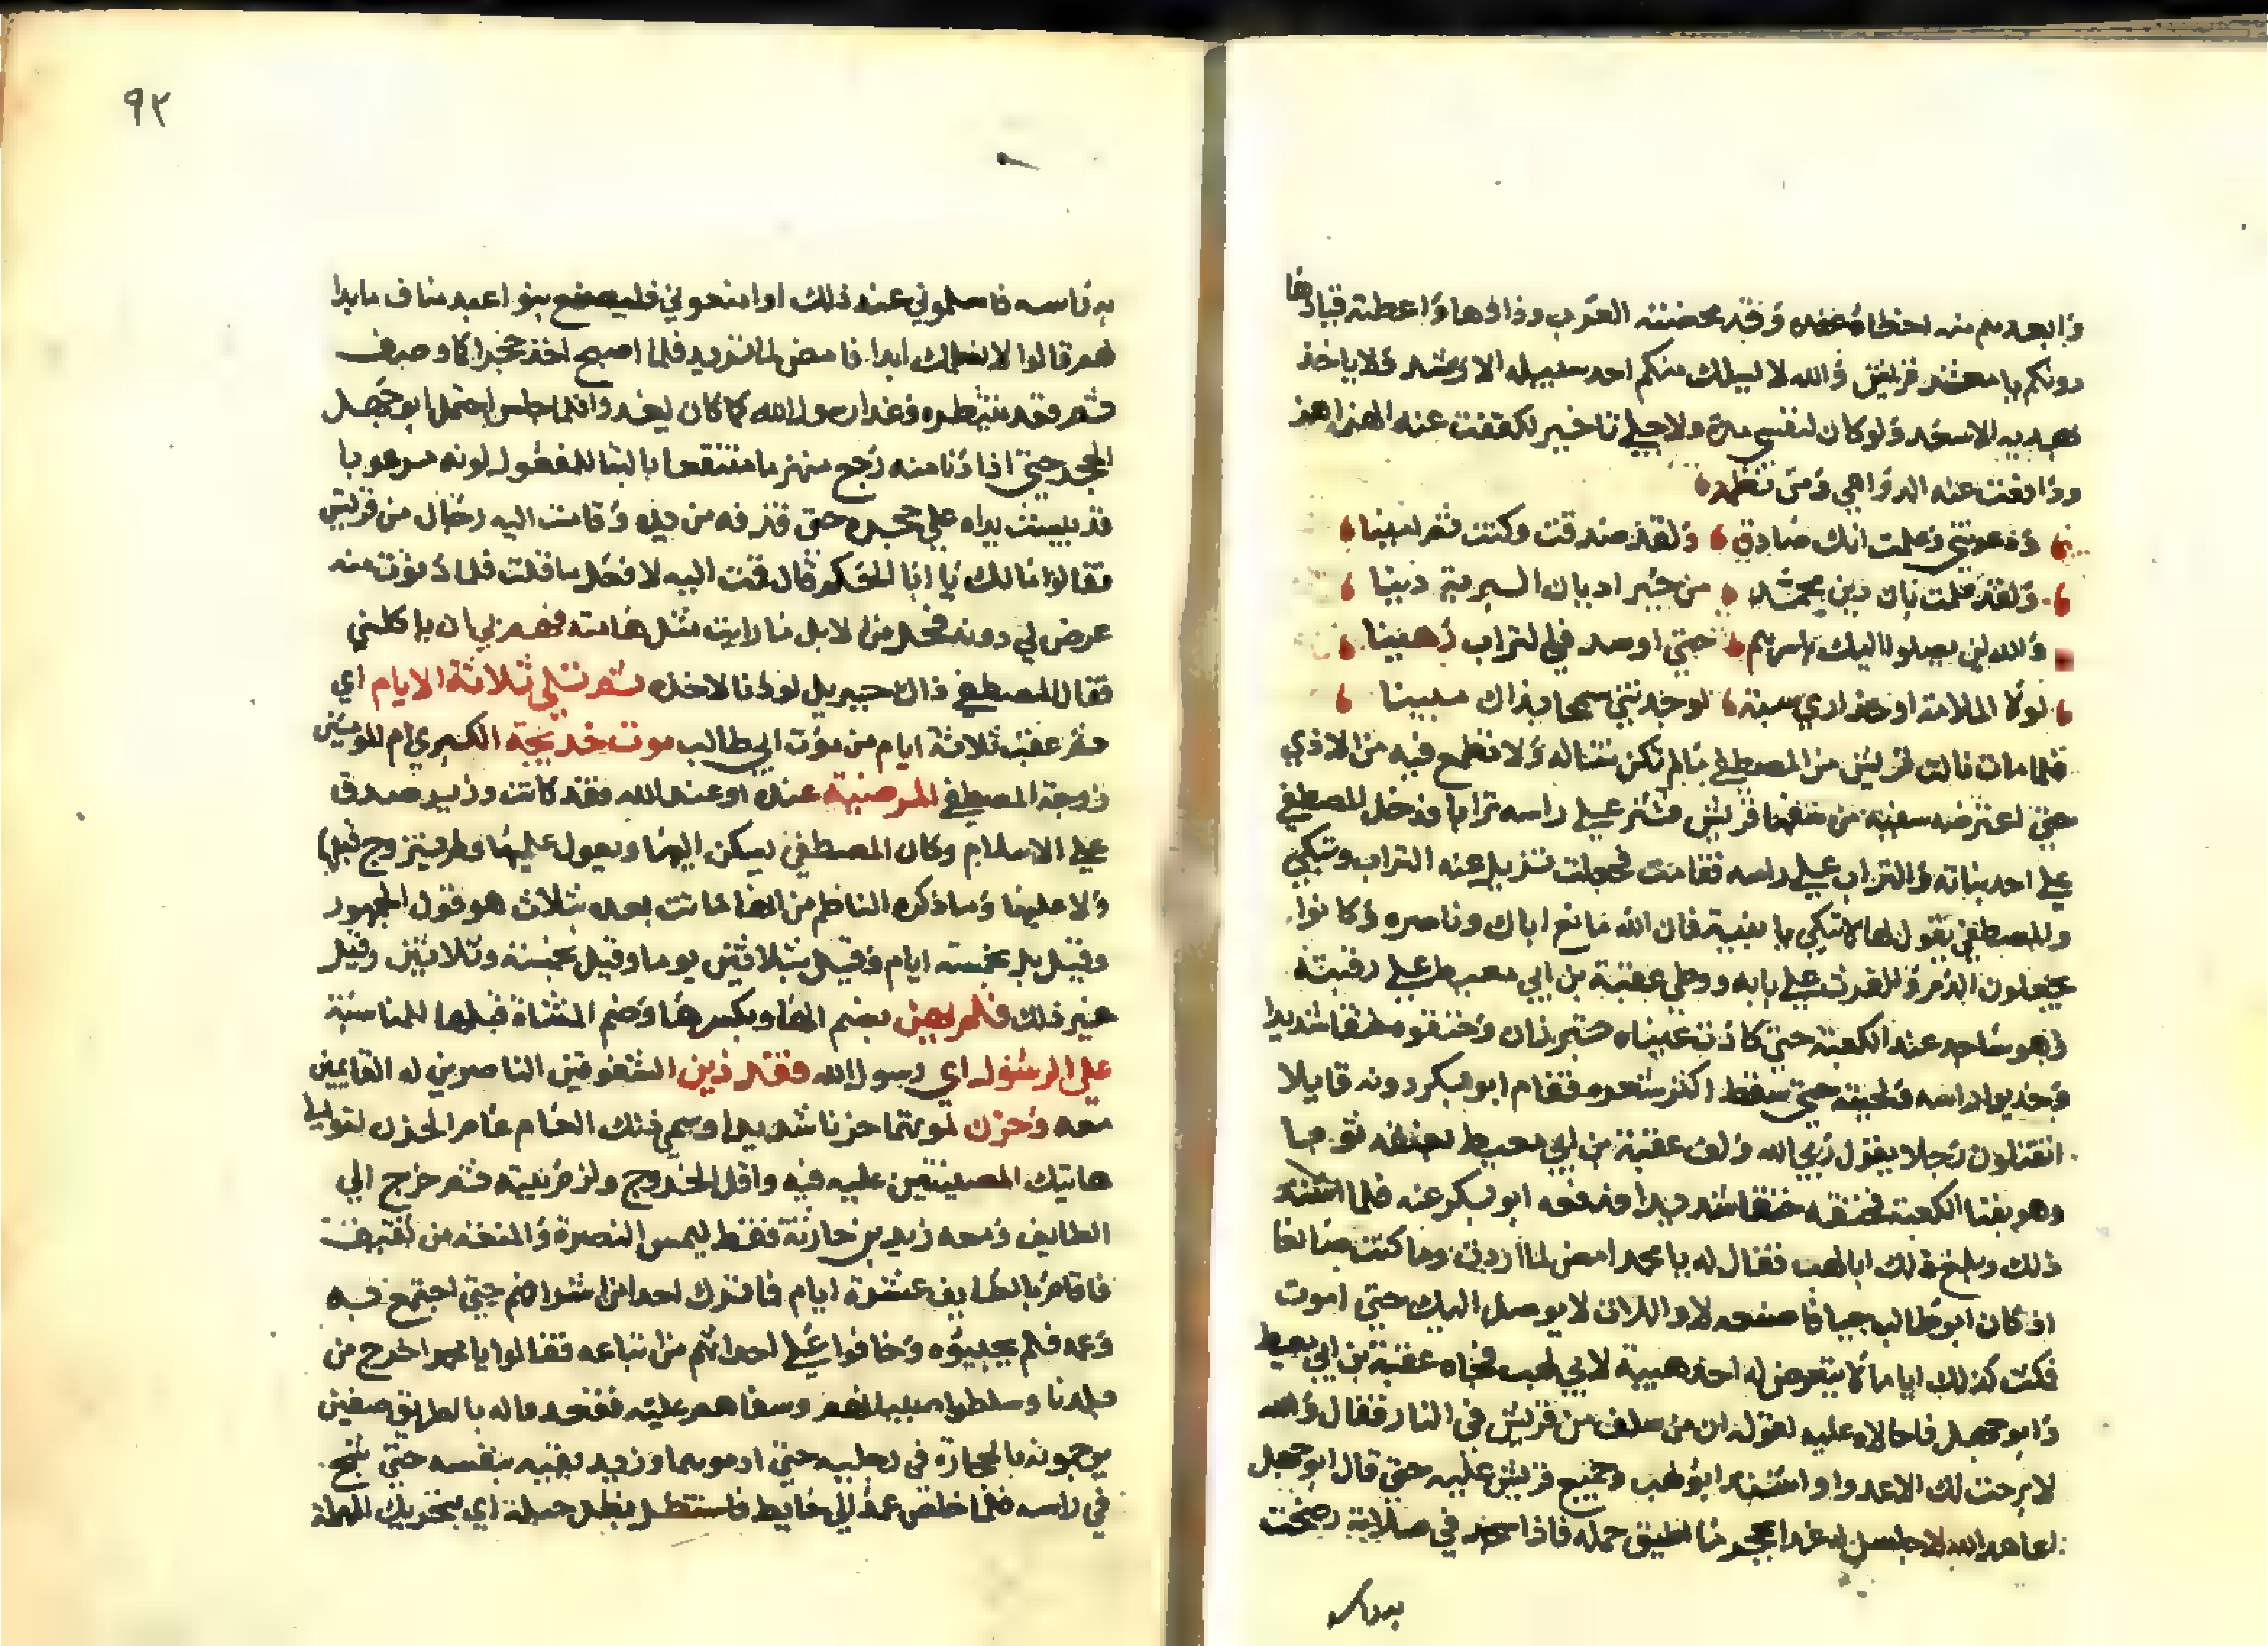 وابعدهم منه احظا عنده وقد محضته العرب ودادها واعطته قيادها
دونكم يا معشر قريش والله لا يسلك منكم احد سبيله الا رشد ولا ياخذ
بهديه الا سعد ولو كان لنفسي مدة ولاجلي تاخير لكففت عنه الهزاهز
ودافعت عنه الدواهي ومن نظمه
ودعوتني وعلمت انك صادق ولقد صدقت وكنت ثم امينا
ولقد علمت بان دين محمد من خير اديان البرية دينا
والله لن يصلوا اليك بجمعهم حتى اوسد في التراب دفينا
لولا الملامة او حذاري سبة لوجدتني سمحا بذاك مبينا
فلما مات نالت قريش من المصطفى ما لم تكن تناله ولا تطمع فيه من الاذي
حتى اعترضه سفيه من سفها قريش فنثر علي راسه ترابا فدخل المصطفى
علي احد بناته والتراب علي راسه فقامت فجعلت تزيل عنه التراب وتبكي
والمصطفى يقول لها لا تبكي يا بنية فان الله مانع اباك وناصره وكانوا
يجعلون الدم والقذر علي بابه ووطي عقبة بن ابي معيط علي رقبته
وهو ساجد عند الكعبة حتى كادت عيناه تبرزان وخنقوه خنقا شديدا
وجذبوا راسه ولحيته حتى سقط اكثر شعره فقام ابو بكر دونه قايلا
اتقتلون رجلا يقول ربي الله ولف عقبة بن ابي معيط بعنقه ثوبا
وهو بفنا الكعبة فخنقه خنقا شديدا فدفعه ابو بكر عنه فلما اشتد
ذلك وبلغ ذلك ابا لهب فقال له يا محمد امض لما اردت وما كنت صانعا
اذ كان ابو طالب حيا فاصنعه لا واللات لا يوصل اليك حتى اموت
فمكث كذلك اياما لا يتعرض له احد هيبة لابي لهب فجاه عقبة بن ابي معيط
وابو جهل فاحالاه عليه لقوله ان من سلف من قريش في النار فقال والله
لا برحت لك الا عدوا واشتد ابو لهب وجميع قريش عليه حتى قال ابو جهل
اعاهد الله لاجلسن له غدا بحجر ما اطيق حمله فاذا سجد في صلاته رضخت
به راسه
٩٢
به راسه فاسلموني عند ذلك او امنعوني فليصنع بنو اعبد مناف ما بدا
لهم قالوا لا نسلمك ابدا فامض لما تريد فلما اصبح اخذ حجرا كما وصف
ثم قعد ينتظره وغدا رسول الله كما كان يغدوا فلما جلس احتمل ابو جهل
الحجر حتى اذا دنا منه رجع منهزما منتقعا بالبنا للمفعول لونه مرعوبا
قد يبست يداه علي حجره حتى قذفه من يده وقامت اليه رجال من قريش
فقالوا مالك يا ابا الحكم قال قمت اليه لافعل ما قلت فلما دنوت منه
عرض لي دونه فحل من الابل ما رايت مثل هامته فهم بي ان ياكلني
فقال المصطفى ذاك جبريل لو دنا لاخذه ثم تلي ثلاثة الايام اي
ثم عقب ثلاثة ايام من موت ابي طالب موت خديجة الكبري ام المومنين
زوجة المصطفى المرضية عنده او عند الله فقد كانت وزير صدق
علي الاسلام وكان المصطفى يسكن اليها ويعول عليها ولم يتزوج قبلها
ولا عليها وما ذكره الناظم من انها ماتت بعده بثلاث هو قول الجمهور
وقيل بل بخمسة ايام وقيل بثلاثين يوما وقيل بخمسة وثلاثين وقيل
غير ذلك فلم يهن بضم الها وبكسرها وضم المثناة قبلها للمناسبة
علي الرسول اي رسول الله فقد ذين الشفوقين الناصرين له القايمين
معه وحزن لموتهما حزنا شديدا وسمي ذلك العام عام الحزن لتوالي
هاتيك المصيبتين عليه فيه واقل الخروج ولزم بيته ثم خرج الي
الطايف ومعه زيد بن حارثة فقط ليلتمس النصرة والمنعة من ثقيف
فاقام بالطايف عشرة ايام فما ترك احدا من اشرافهم حتى اجتمع به
وعده فلم يجيبوه وخافوا علي احداثهم من اتباعه فقالوا يا محمد اخرج من
بلدنا وسلطوا عبيدهم وسفاهم عليه فقعدوا له بالطريق صفين
يرجمونه بالحجارة في رجليه حتى ادموهما وزيد يقيه بنفسه حتى شج
في راسه فلما خلص عمد الي حايط فاستظل بظل حبلة اي بتحريك المهملة